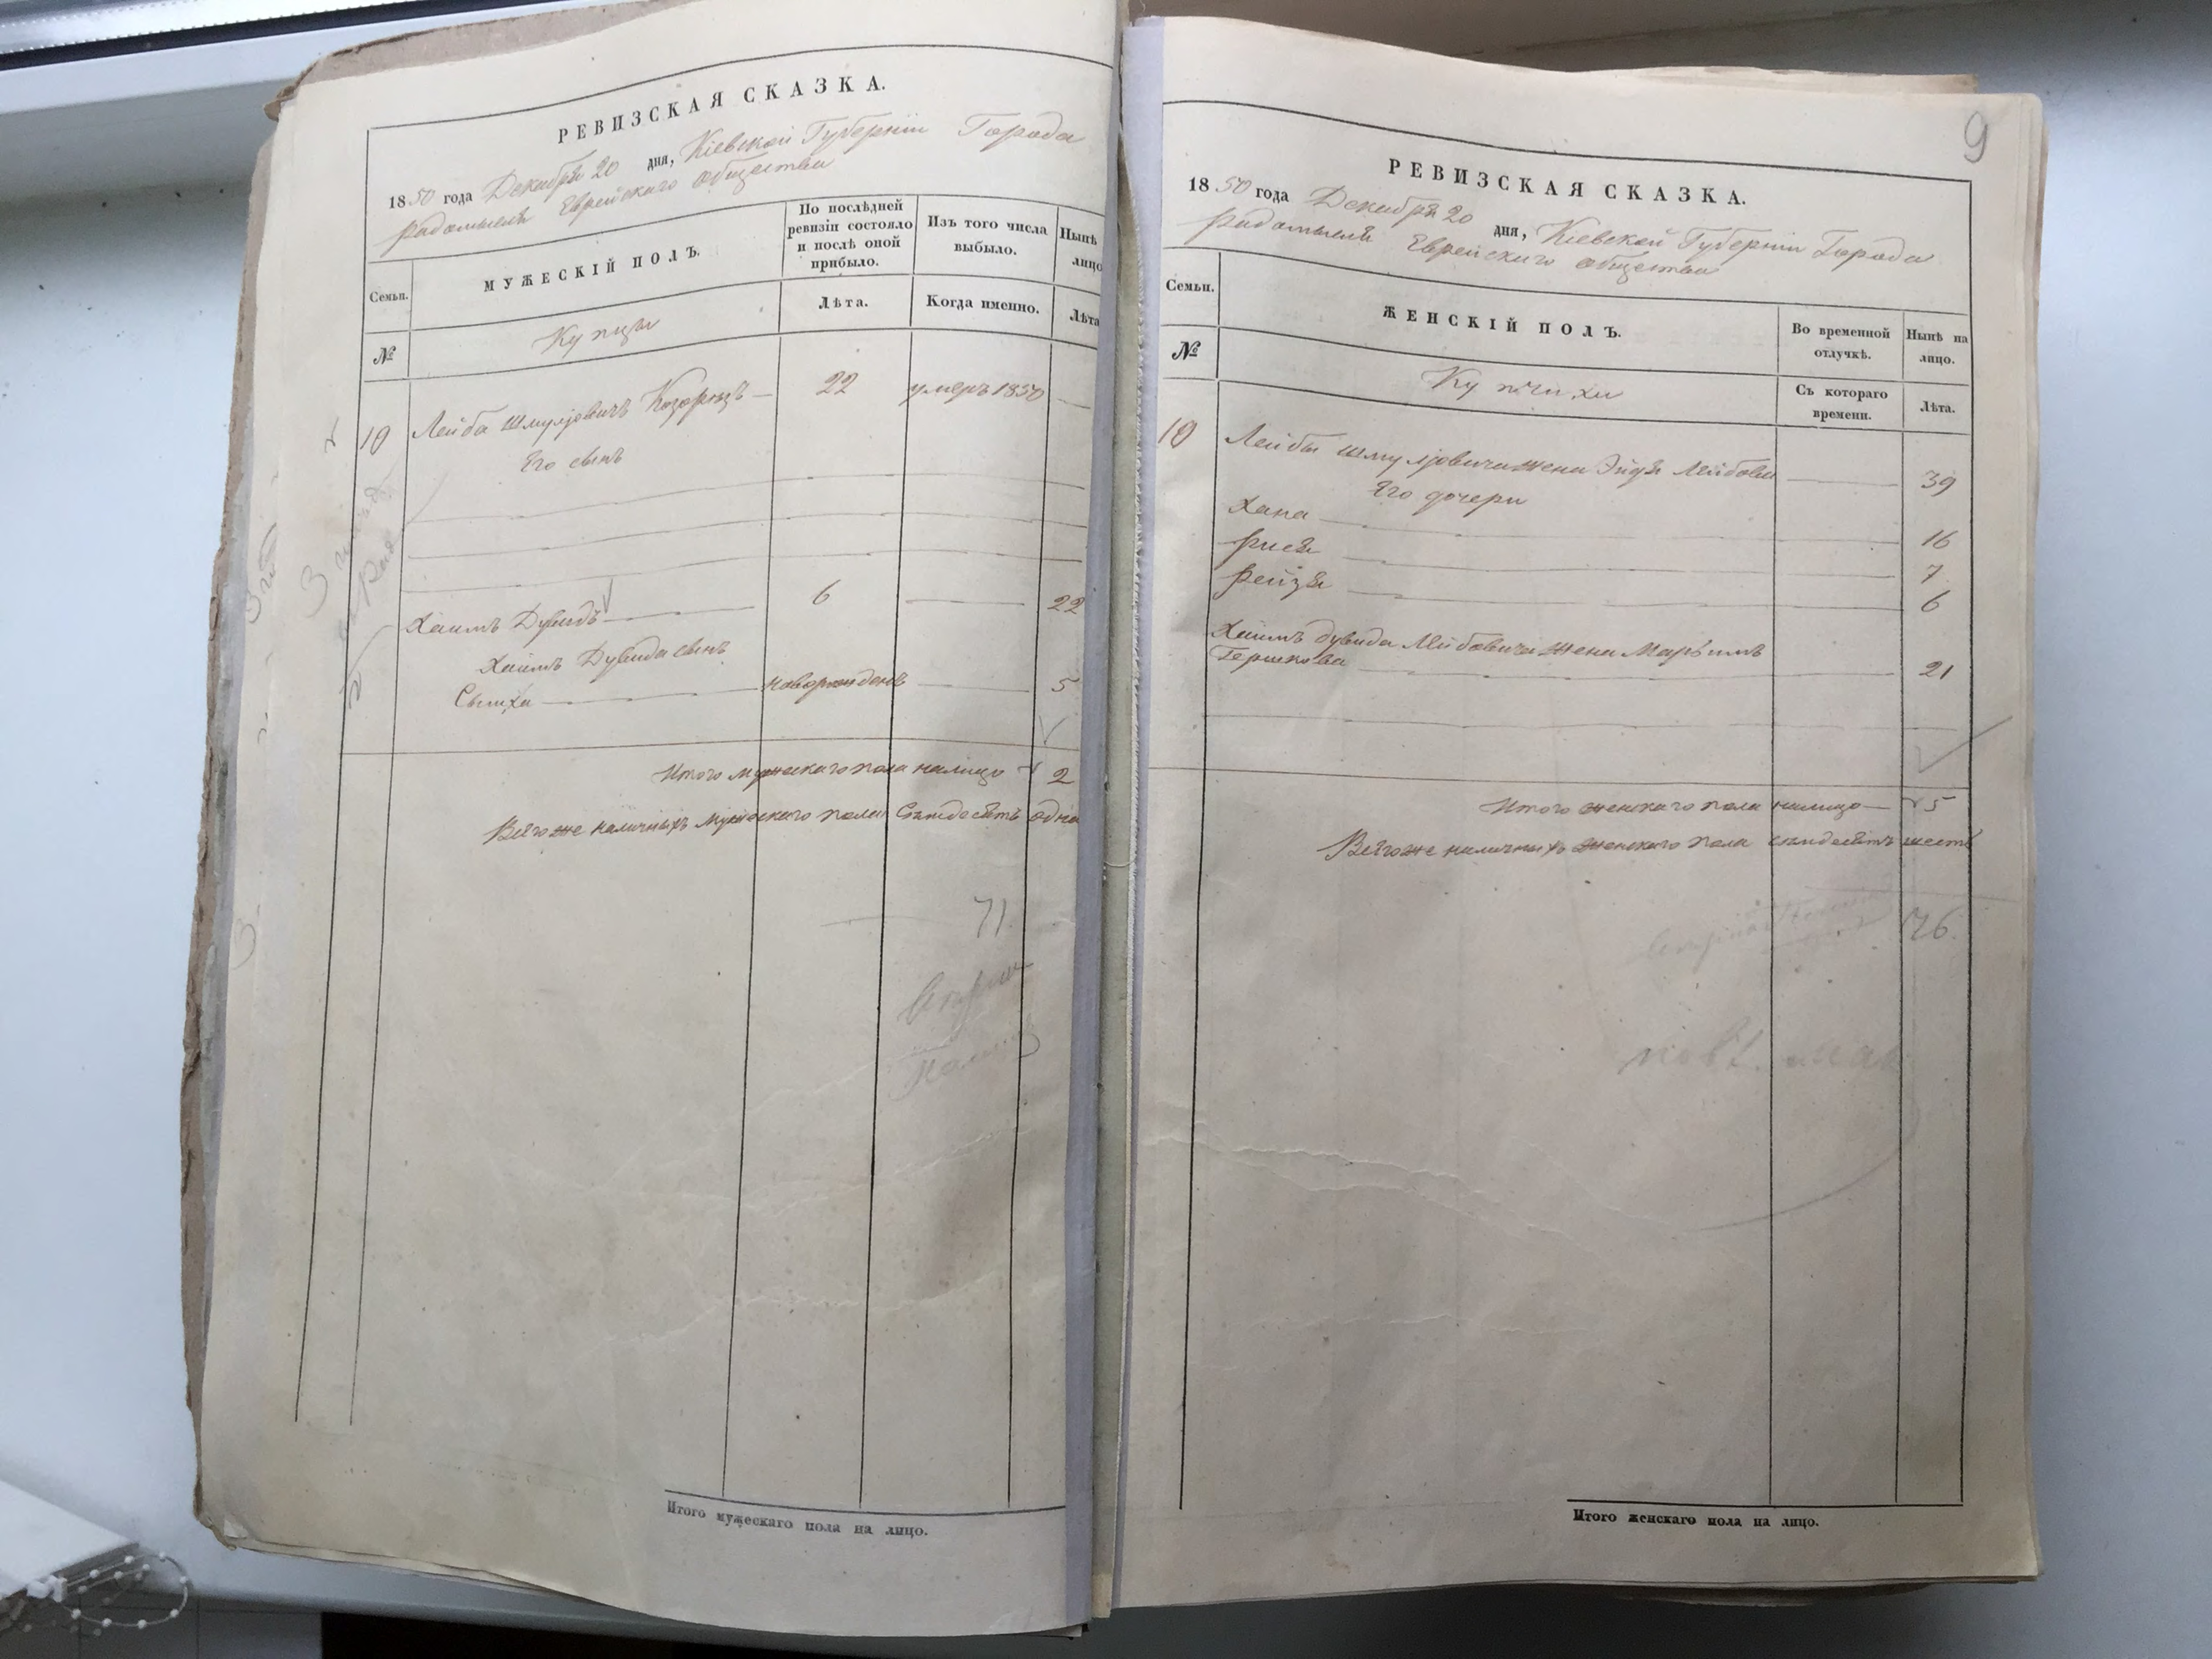 РЕВИЗСКАЯ СКАЗКА.
1850 года Декабря 20 дня, Кіевской Губерніи Города
Радомысля Еврейскаго общества
Семьи.
МУЖЕСКІЙ ПОЛЪ.
По послѣдней ревизіи состояло и послѣ оной прибыло.
Изъ того числа выбыло.
Нынѣ лицо
№
Купцы
Лѣта.
Когда именно.
Лѣта
10 Лейба Шмулјовичъ — 22 умеръ 1850 —
Его сынъ
Хаимъ Дувидъ — 6 — 22
Хаимъ Дувида сынъ
Сымха — новорожденъ — 5
Итого мужескаго пола налицо 2
Всего же наличныхъ мужескаго пола семдесятъ одна
71.
Итого мужескаго пола на лицо.
9
РЕВИЗСКАЯ СКАЗКА.
1850 года Декабря 20 дня, Кіевской Губерніи Города
Радомысля Еврейскаго общества
Семьи.
ЖЕНСКІЙ ПОЛЪ.
Во временной отлучкѣ.
Нынѣ на лицо.
№
Купчихи
Съ котораго времени.
Лѣта.
10 Лейбы Шмулјовича жена Эйдя Лейбова — 39
Его дочери
Хана — 16
Рися — 7
Рейзя — 6
Хаимъ Дувида Лейбовича жена Марьимъ
Гершкова — 21
Итого женскаго пола налицо — 5
Всего же наличныхъ женскаго пола семдесятъ шесть
76.
Итого женскаго пола на лицо.